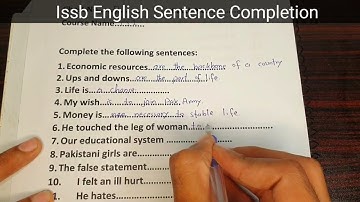 Issb English Sentence Completion
Course Name............
Complete the following sentences:
1. Economic resources are the backbone of a country
2. Ups and downs are the part of life.
3. Life is a chance
4. My wish is to join Army
5. Money is necessary to stable life.
6. He touched the leg of woman to
7. Our educational system
8. Pakistani girls are
9. The false statement
10. I felt an ill hurt
1. He hates